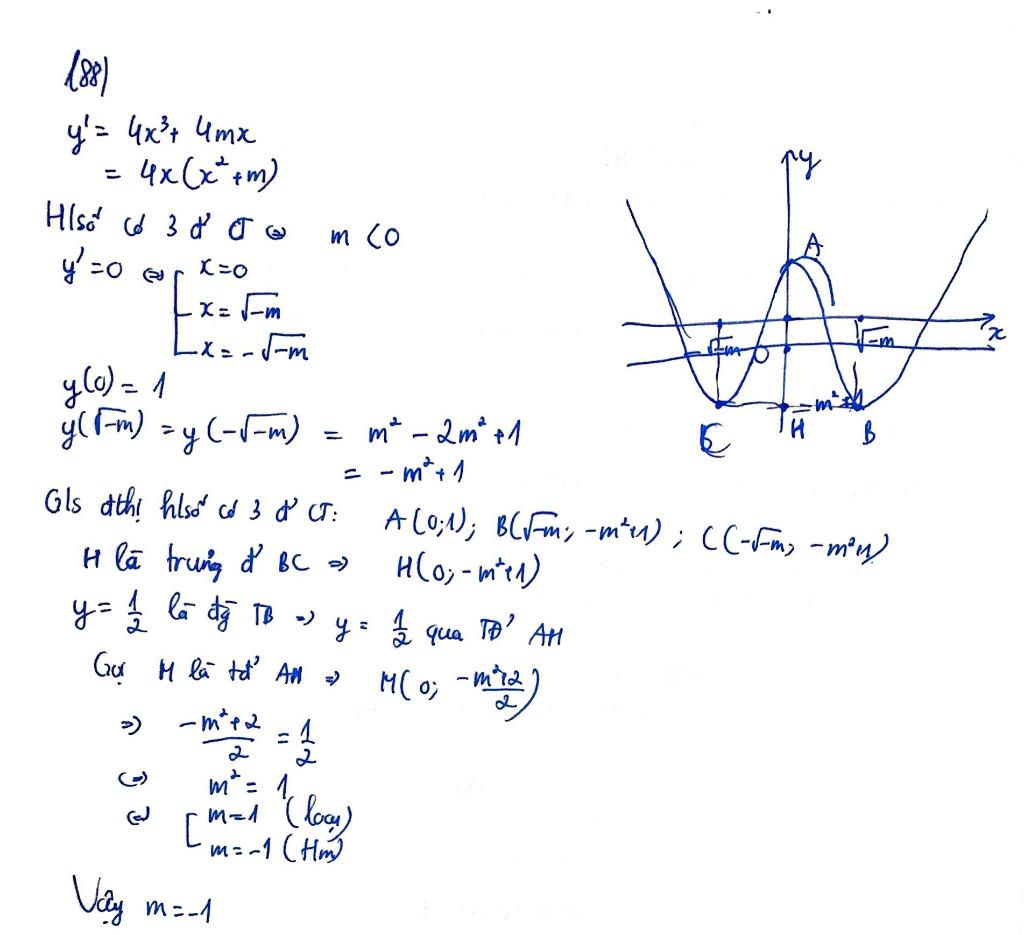 188)
y' = 4x³ + 4mx
= 4x(x² + m)
H/số có 3 đ' CT ⇔ m < 0
y' = 0 ⇔ [ x = 0
x = √-m
x = -√-m
y(0) = 1
y(√-m) = y(-√-m) = m² - 2m² + 1
= -m² + 1
G/s đthị h/số có 3 đ' CT: A(0;1); B(√-m; -m²+1); C(-√-m; -m²+1)
H là trung đ' BC ⇒ H(0; -m²+1)
y = 1/2 là đg TB ⇒ y = 1/2 qua TĐ' AH
Gọi M là tđ' AH ⇒ M(0; (-m²+2)/2)
⇒ (-m²+2)/2 = 1/2
⇔ m² = 1
⇔ [ m = 1 (loại)
m = -1 (t/m)
Vậy m = -1
y
A
x
-√-m
O
√-m
-m²+1
C
H
B